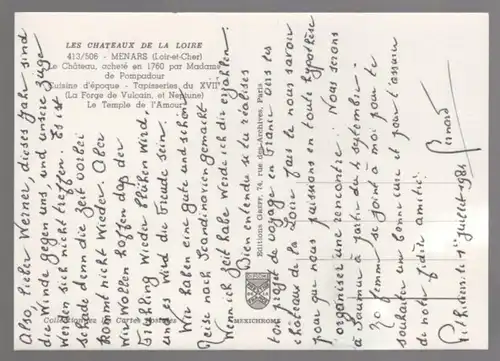 LES CHATEAUX DE LA LOIRE
413/506 - MENARS (Loir-et-Cher)
Le Château, acheté en 1760 par Madame
de Pompadour
Cuisine d'époque - Tapisseries du XVIIe
(La Forge de Vulcain, et Neptune)
Le Temple de l'Amour
Also lieber Werner, dieses Jahr sind
die Winde gegen uns und unsere Züge
werden sich nicht treffen. Es ist
schade denn die Zeit vorbei
kommt nicht wieder. Aber
wir wollen hoffen dass der
Frühling wieder blühen wird,
und es wird die Freude sein.
Wir haben eine gute und schöne
Reise nach Scandinavien gemacht
Wenn ich Zeit habe werde ich dir erzählen.
Bien entendu si tu réalises
ton projet de voyage en France vers les
châteaux de la Loire fais le nous savoir
pour que nous puissions en toute hypothèse
organiser une rencontre. Nous serons
à Saumur à partir du 4 septembre.
Ma femme se joint à moi pour te
souhaiter une bonne cure et pour t'assurer
de notre fidèle amitié.
le 1er juillet 1984
Bernard
Editions Guerry, 74, rue des Archives, Paris
MEXICHROME
Collectionnez les Cartes Postales